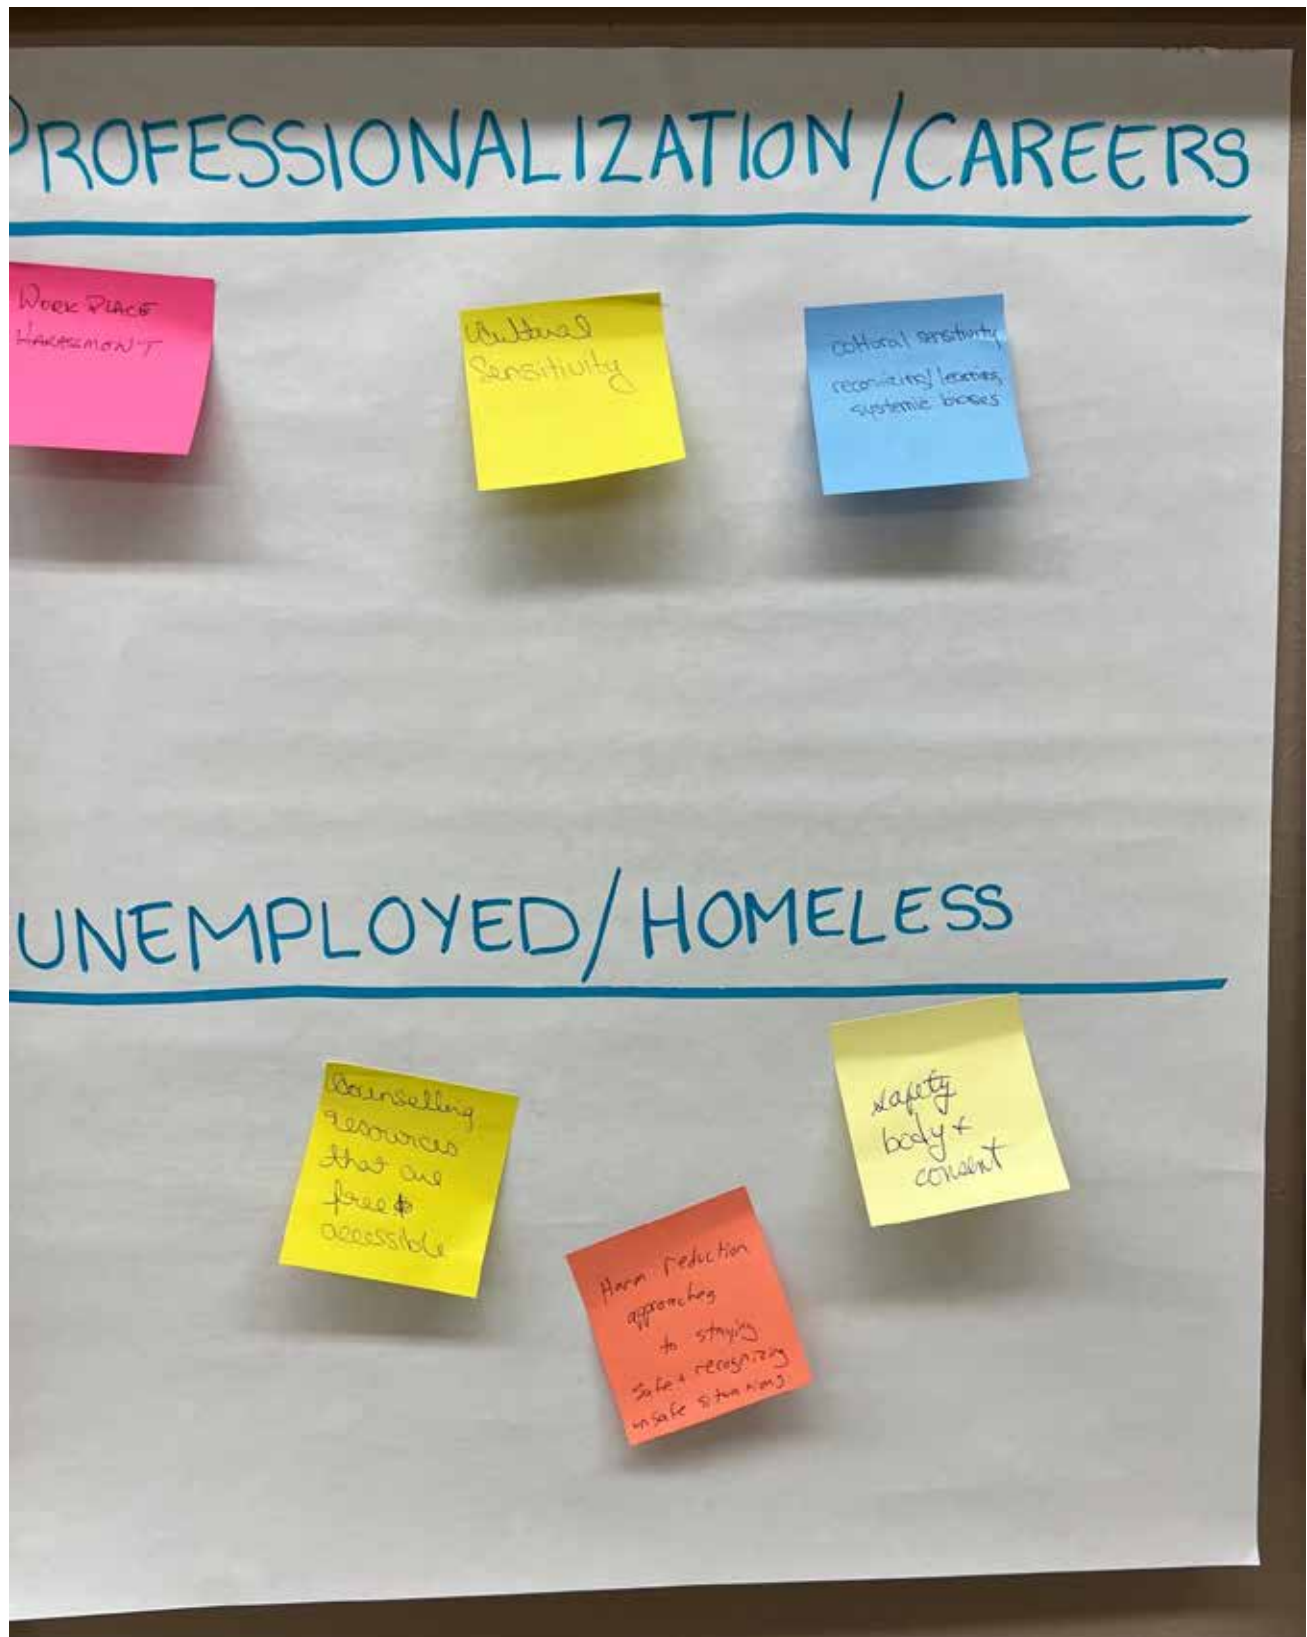 PROFESSIONALIZATION/CAREERS
WORK PLACE
HARASSMENT
Cultural
Sensitivity
coltoral sensitivity
systemic biases
UNEMPLOYED/HOMELESS
Counselling
resources
that are
free &
accessible
Harm reduction
approaches
to staying
safe + recognizing
unsafe situations
safety
body +
consent